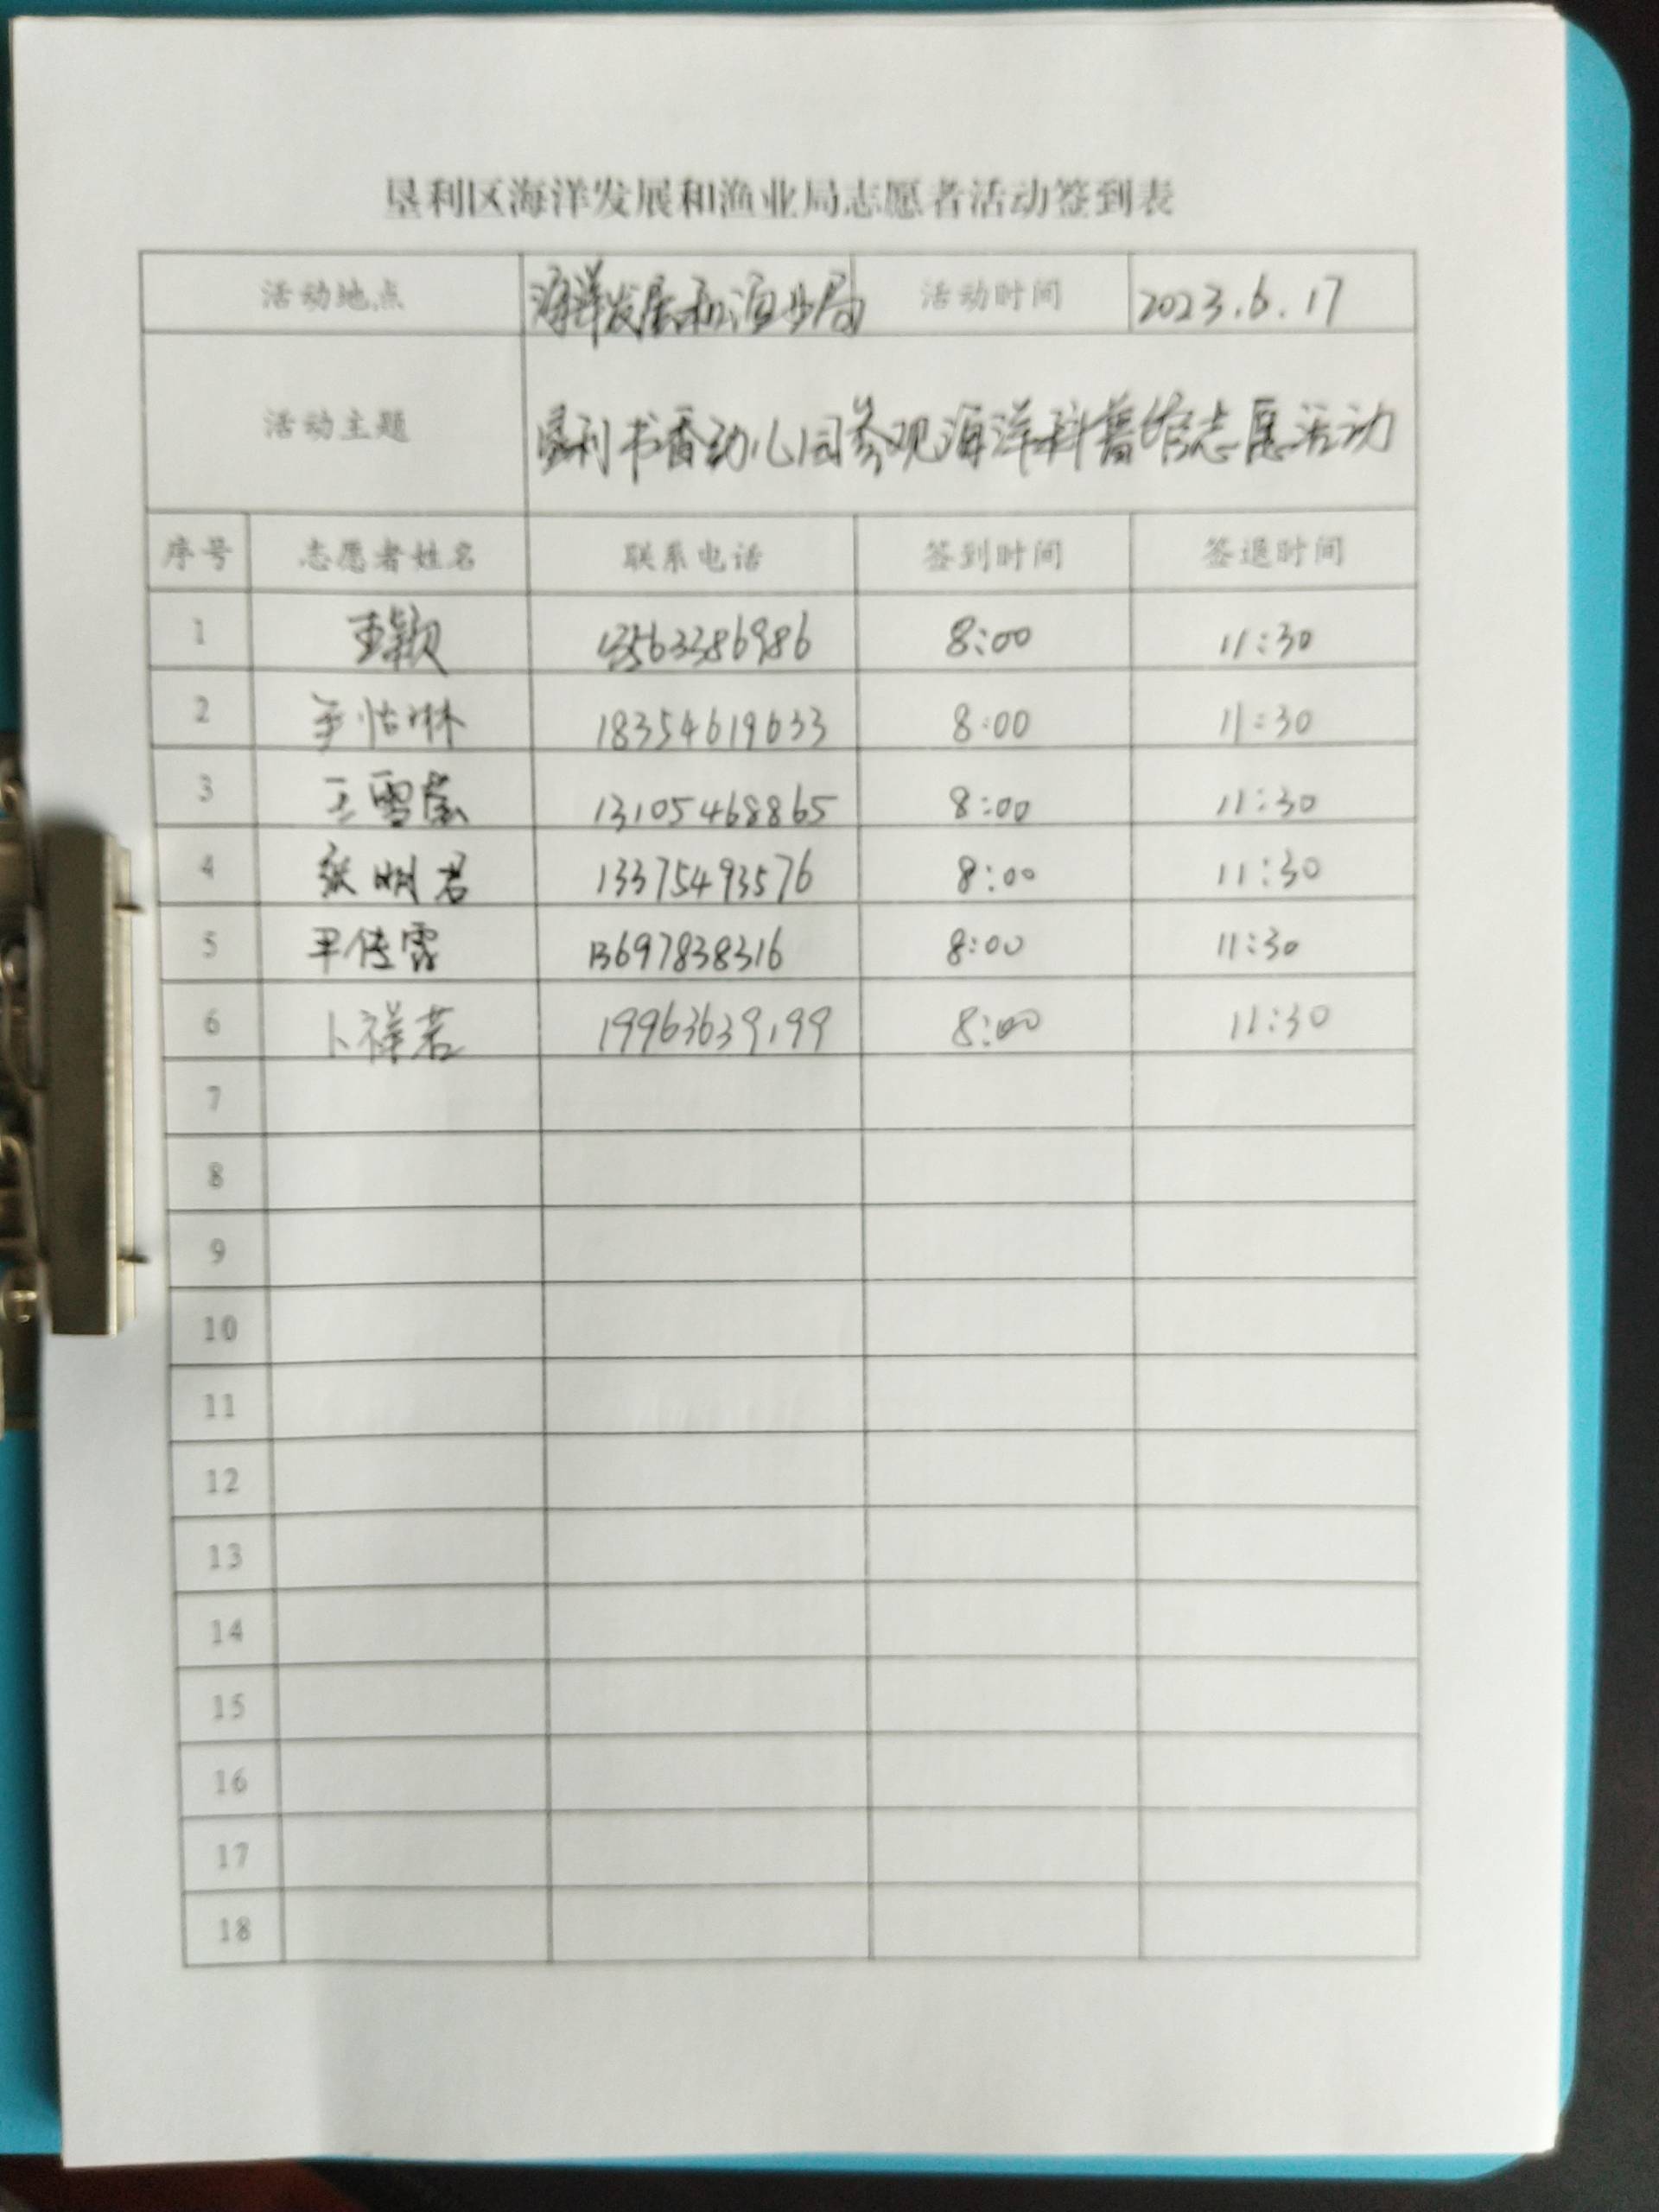 垦利区海洋发展和渔业局志愿者活动签到表
活动地点 海洋发展和渔业局 活动时间 2023.6.17
活动主题 垦利书香幼儿园参观海洋科普馆志愿活动
序号 志愿者姓名 联系电话 签到时间 签退时间
1 王颖 13563386986 8:00 11:30
2 18354619633 8:00 11:30
3 王雪莹 13105468865 8:00 11:30
4 张明君 13375493576 8:00 11:30
5 13697838316 8:00 11:30
6 卜祥若 19963639199 8:00 11:30
7
8
9
10
11
12
13
14
15
16
17
18